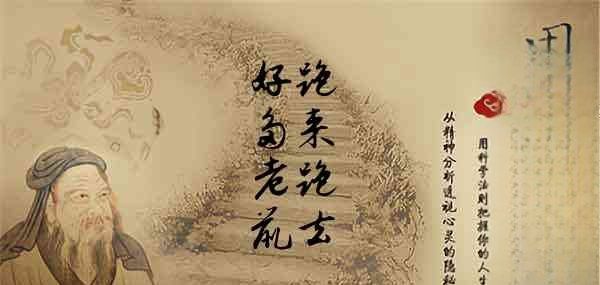 用科学法则把握你的人生
从精神分析透视心灵的隐秘
跑来跑去
好多老鼠